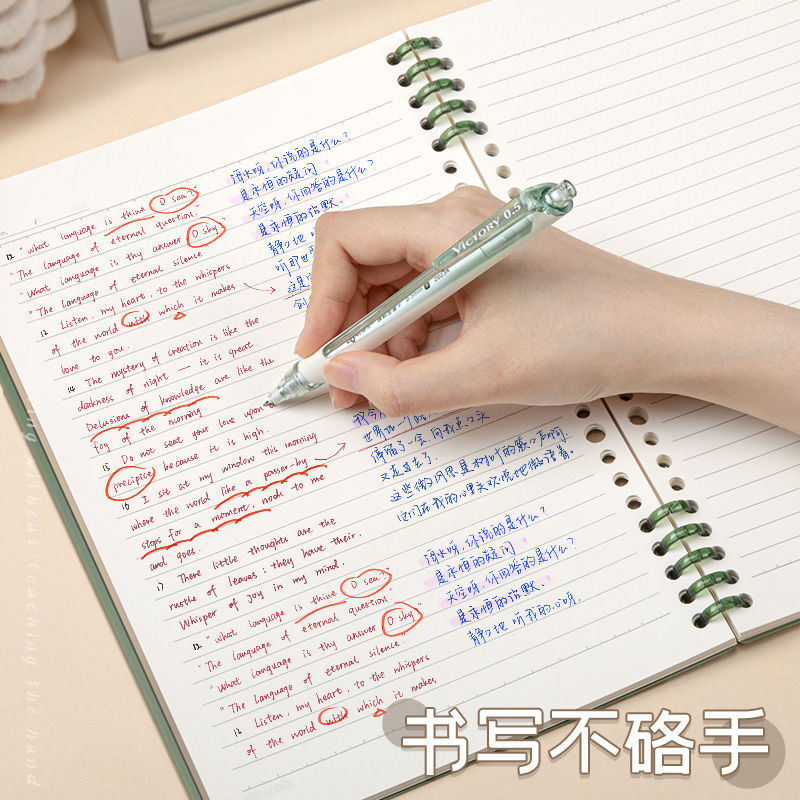 12 "What language is thine O sea?"
"The language of eternal question."
"What language is thy answer O sky"
"The language of eternal silence.
13 Listen, my heart, to the whispers
of the world with which it makes
love to you.
14 The mystery of creation is like the
darkness of night — it is great.
Delusions of knowledge are like the
fog of the morning
15 Do not seat your love upon a
precipice because it is high.
16 I sit at my window this morning
where the world like a passer-by
stops for a moment, nods to me
and goes.
17 There little thoughts are the
rustle of leaves; they have their.
Whisper of joy in my mind.
12 "What language is thine O sea."
"The language of eternal question."
"What language is thy answer O sky"
"The language of eternal silence.
13 Listen, my heart, to the whispers
of the world with which it makes
海水呀,你说的是什么?
是永恒的疑问
天空呀,你回答的是什么?
是永恒的沉默.
静静地
听那世
我今
世界如一个
停留了一会,向我点点头
又走过去了.
这些微
海水呀,你说的是什么?
是永恒的疑问
天空呀,你回答的是什么?
是永恒的沉默.
静静地听 我的心呀.
VICTORY 0.5
书写不硌手